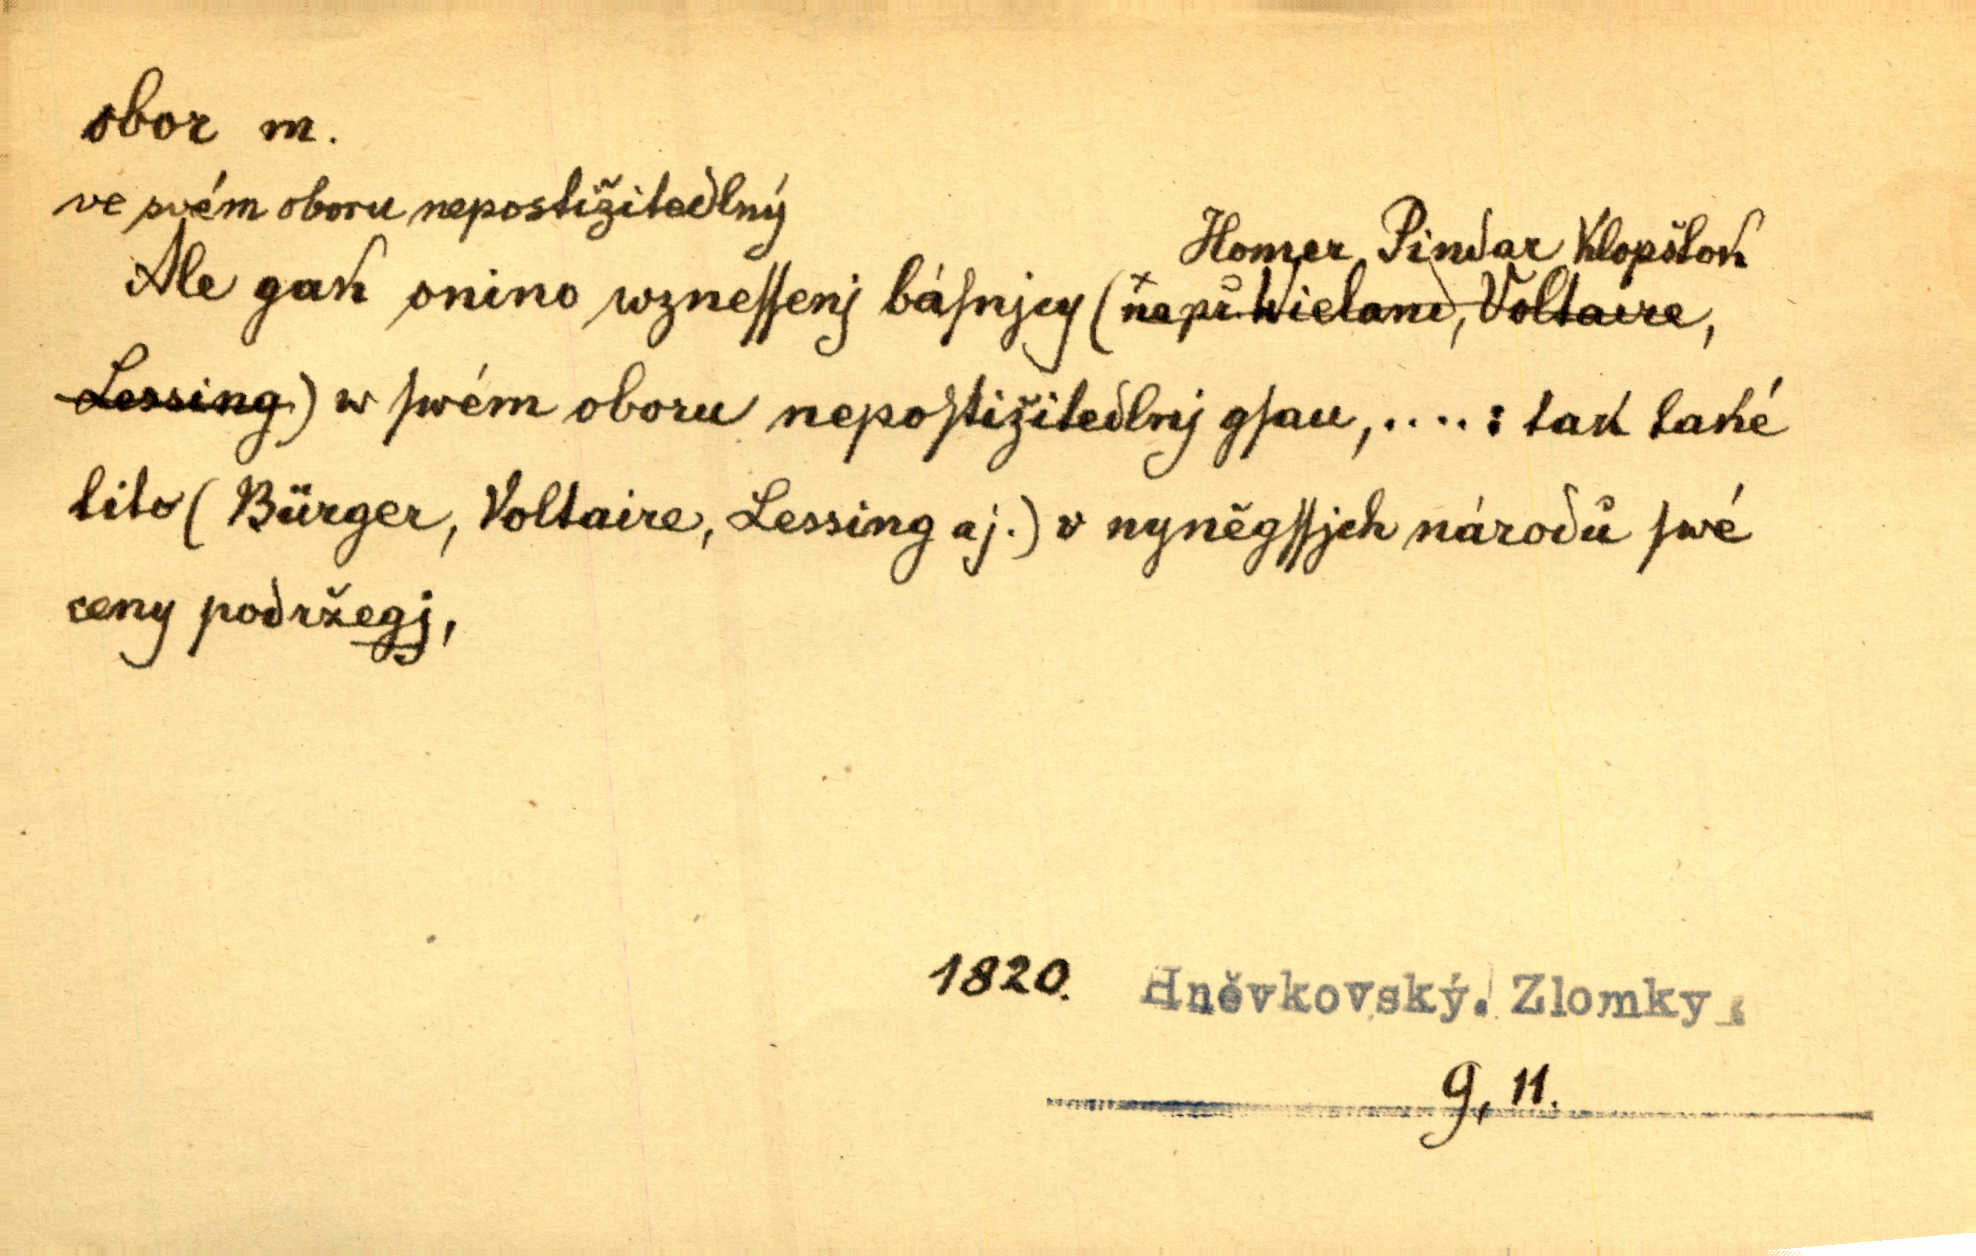 obor m.
ve svém oboru nepostižitedlný
Homer Pindar Klopštok
Ale gak onino wzneſſenj báſnjcy (např. Wieland, Voltaire,
Lessing) w ſwém oboru nepoſtižitedlnj gſau,....: tak také
tito (Bürger, Voltaire, Lessing aj.) v nyněgſſjch národů ſwé
ceny podržegj,
1820. Hněvkovský. Zlomky
9, 11.